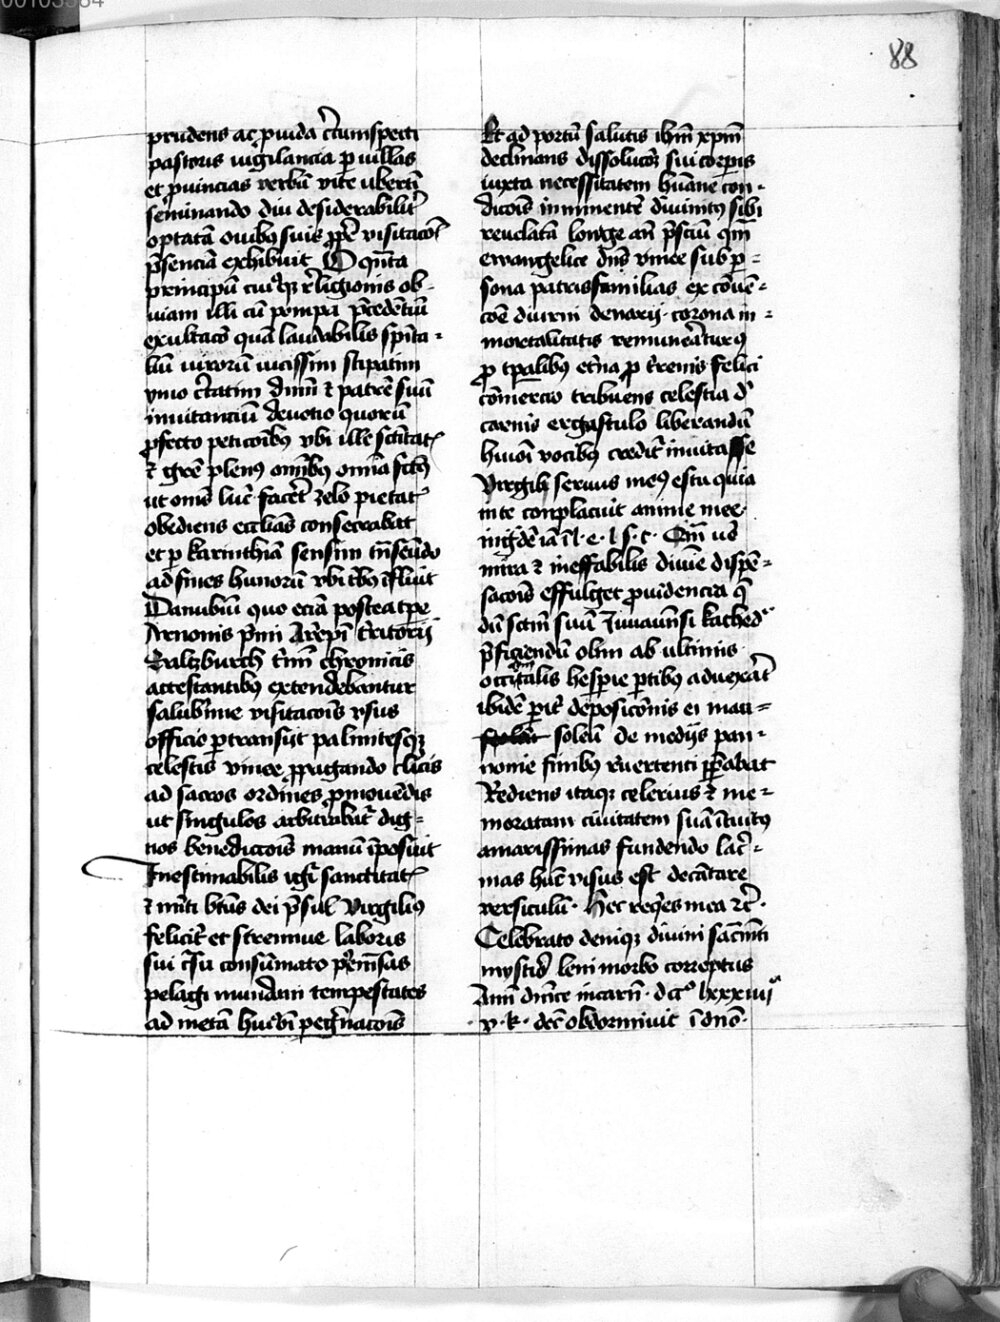 00103584
88
prudens ac p̲uida c̄cumspecti
pastoris uigilancia p̲ uillas
et p̲uincias verbū vite ubertī
seminando diu desiderabilit̄
optatā ouibꝰ suis visitacōī
p̄senciā exhibuit O qn̄ta
principū cuiꝰqꝫ religionis ob-
uiam illi cū pompa p̄cedētiū
exultacō quā laudabilis spīta-
liū uirorū uicissim stipatim
ymo c̄tatim dīm̄ ⁊ patrē suū
inuitanciū deuotio quorū
p̲fecto peticōībꝰ vbi ille scītat̄
⁊ gr̄e plenꝰ om̄ibꝰ om̄ia
ut om̄s luc̄ facēt zelo pietat̄
obediens eccl̄iās consecrabat
et p̲ karinthiā sensim
ad fines hunorū vbi ībꝰ īfluit
Danubiū quo eciā postea tp̄e
Arnonis p̄mi Arēpī t̄ritorij
Saltzburch t̄mī chronicis
attestantibꝰ extendebantur
salub̄rime visitacōis vsus
officio p̲transijt palmitesqꝫ
celestis vinee p̲pagando cl̄icis
ad sacros ordines p̲mouēdis
ut singulos arbitrabat̄ dig-
nos benedictōis manū īposuit
Inestimabilis igr̄ sanctitat̄
⁊ mīti btūs dei p̄sul Virgiliꝰ
felicit̄ et strennue laboris
sui c̄su consūmato
pelagi mundani tempestates
ad metā peḡnacōis
Et ad portū salutis ihm̄ xpm̄
declinans dissolucōꝫ sui corp̲is
iuxta necessitatem hūane con-
dicōis inminentē diuinitꝰ sibi
reuelatā longe an̄ p̄sciū qm̄
ewangelice dn̄s vinee sub p̲-
sona patrisfamilias ex cōuē-
cōe diurni denarij corona in-
mortalitatis remuneāturꝰ
p̲ tp̲alibꝰ et̄na p̲ t̄renis felici
cōmercio tribuens celestia d̄
carnis ergastulo liberandū
huiōi vocibꝰ credit̄ inuitasse
Virgilij seruus meꝰ es tu quia
in te conplacuit anime mee
ī l· e· l s· c· Qm̄ uō
mīra ⁊ ineffabilis diuīe dispē-
sacōis effulget p̲uidencia q̄
dū scīm suū Juuauēnsi kathed̄
p̄ficiendū olim ab ultimis
occītalis hesp̲ie p̲tibꝰ aduexāt
ibidē p̲it̄ deposicōnis ei mau-
soleū de medijs pan-
nonie finibꝰ reuertenti p̄p̲abat
Rediens itaqꝫ celerius ⁊ me-
moratam ciuitatem suā ītuitꝰ
amarissimas fundendo lac̄-
mas huc visus est decātare
versiculū· Hec reqˀes mea ⁊c̄·
Celebrato deniqꝫ diuini sac̄mti
mysterio leni morbo correptus
Anī dn̄ice incarn̄· dccº lxxxiiijª
v· k· dec̄ obdormiuit ī dn̄o·